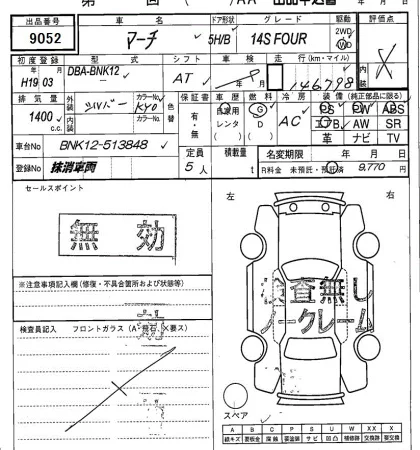 出品番号 車名 ドア形状 グレード 駆動 評価点
9052 マーチ 5H/B 14S FOUR 2WD WD X
初度登録 型式 シフト 車検 走行(km・マイル) 内装
H19 年 03 月 DBA-BNK12 AT 年 月 146,798
排気量 外装 カラーNo. 色替 保証書 車歴 燃料 冷房 装備(純正部品に限る)
1400 c.c. シルバー カラーNo. KY0 有・無 自家用 レンタ ( ) G D ( ) AC PS PW ABS
エアB AW SR
革 ナビ TV
車台No BNK12-513848 定員 積載量 名変期限 年 月 日
登録No 抹消車両 5人 t R料金 未預託・預託済 9,770円
セールスポイント
左 右
無効
※注意事項記入欄(修復・不具合箇所および状態等)
検査無し
ノークレーム
検査員記入 フロントガラス(A・飛石・X要ス)
スペア
A B C P S U W X XX
線キズ 要板金 腐蝕 要塗装 サビ 凹 補修跡 要交換